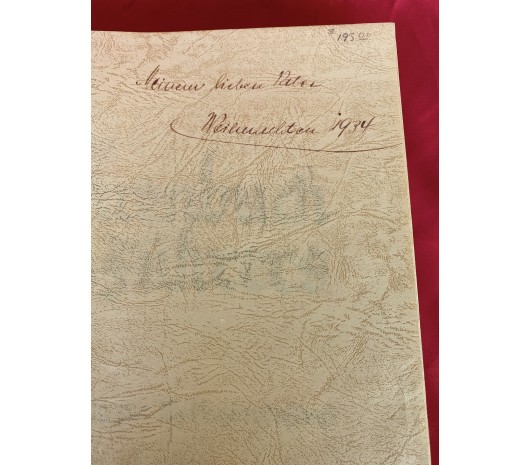 $195.00
Meinem lieben Vater
Weihnachten 1934